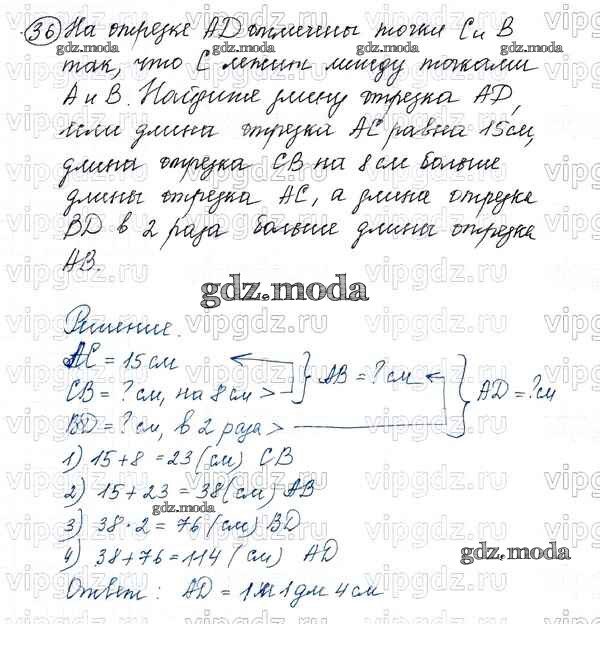 36 На отрезке AD отмечены точки C и B
так, что C лежит между точками
A и B. Найдите длину отрезка AD,
если длина отрезка AC равна 15 см,
длина отрезка CB на 8 см больше
длины отрезка AC, а длина отрезка
BD в 2 раза больше длины отрезка
AB.
gdz.moda
Решение.
AC = 15 см
CB = ? см, на 8 см > } AB = ? см
BD = ? см, в 2 раза > } AD = ? см
1) 15 + 8 = 23 (см) CB
2) 15 + 23 = 38 (см) AB
3) 38 · 2 = 76 (см) BD
4) 38 + 76 = 114 (см) AD
gdz.moda
Ответ: AD = 1 м 1 дм 4 см
vipgdz.ru